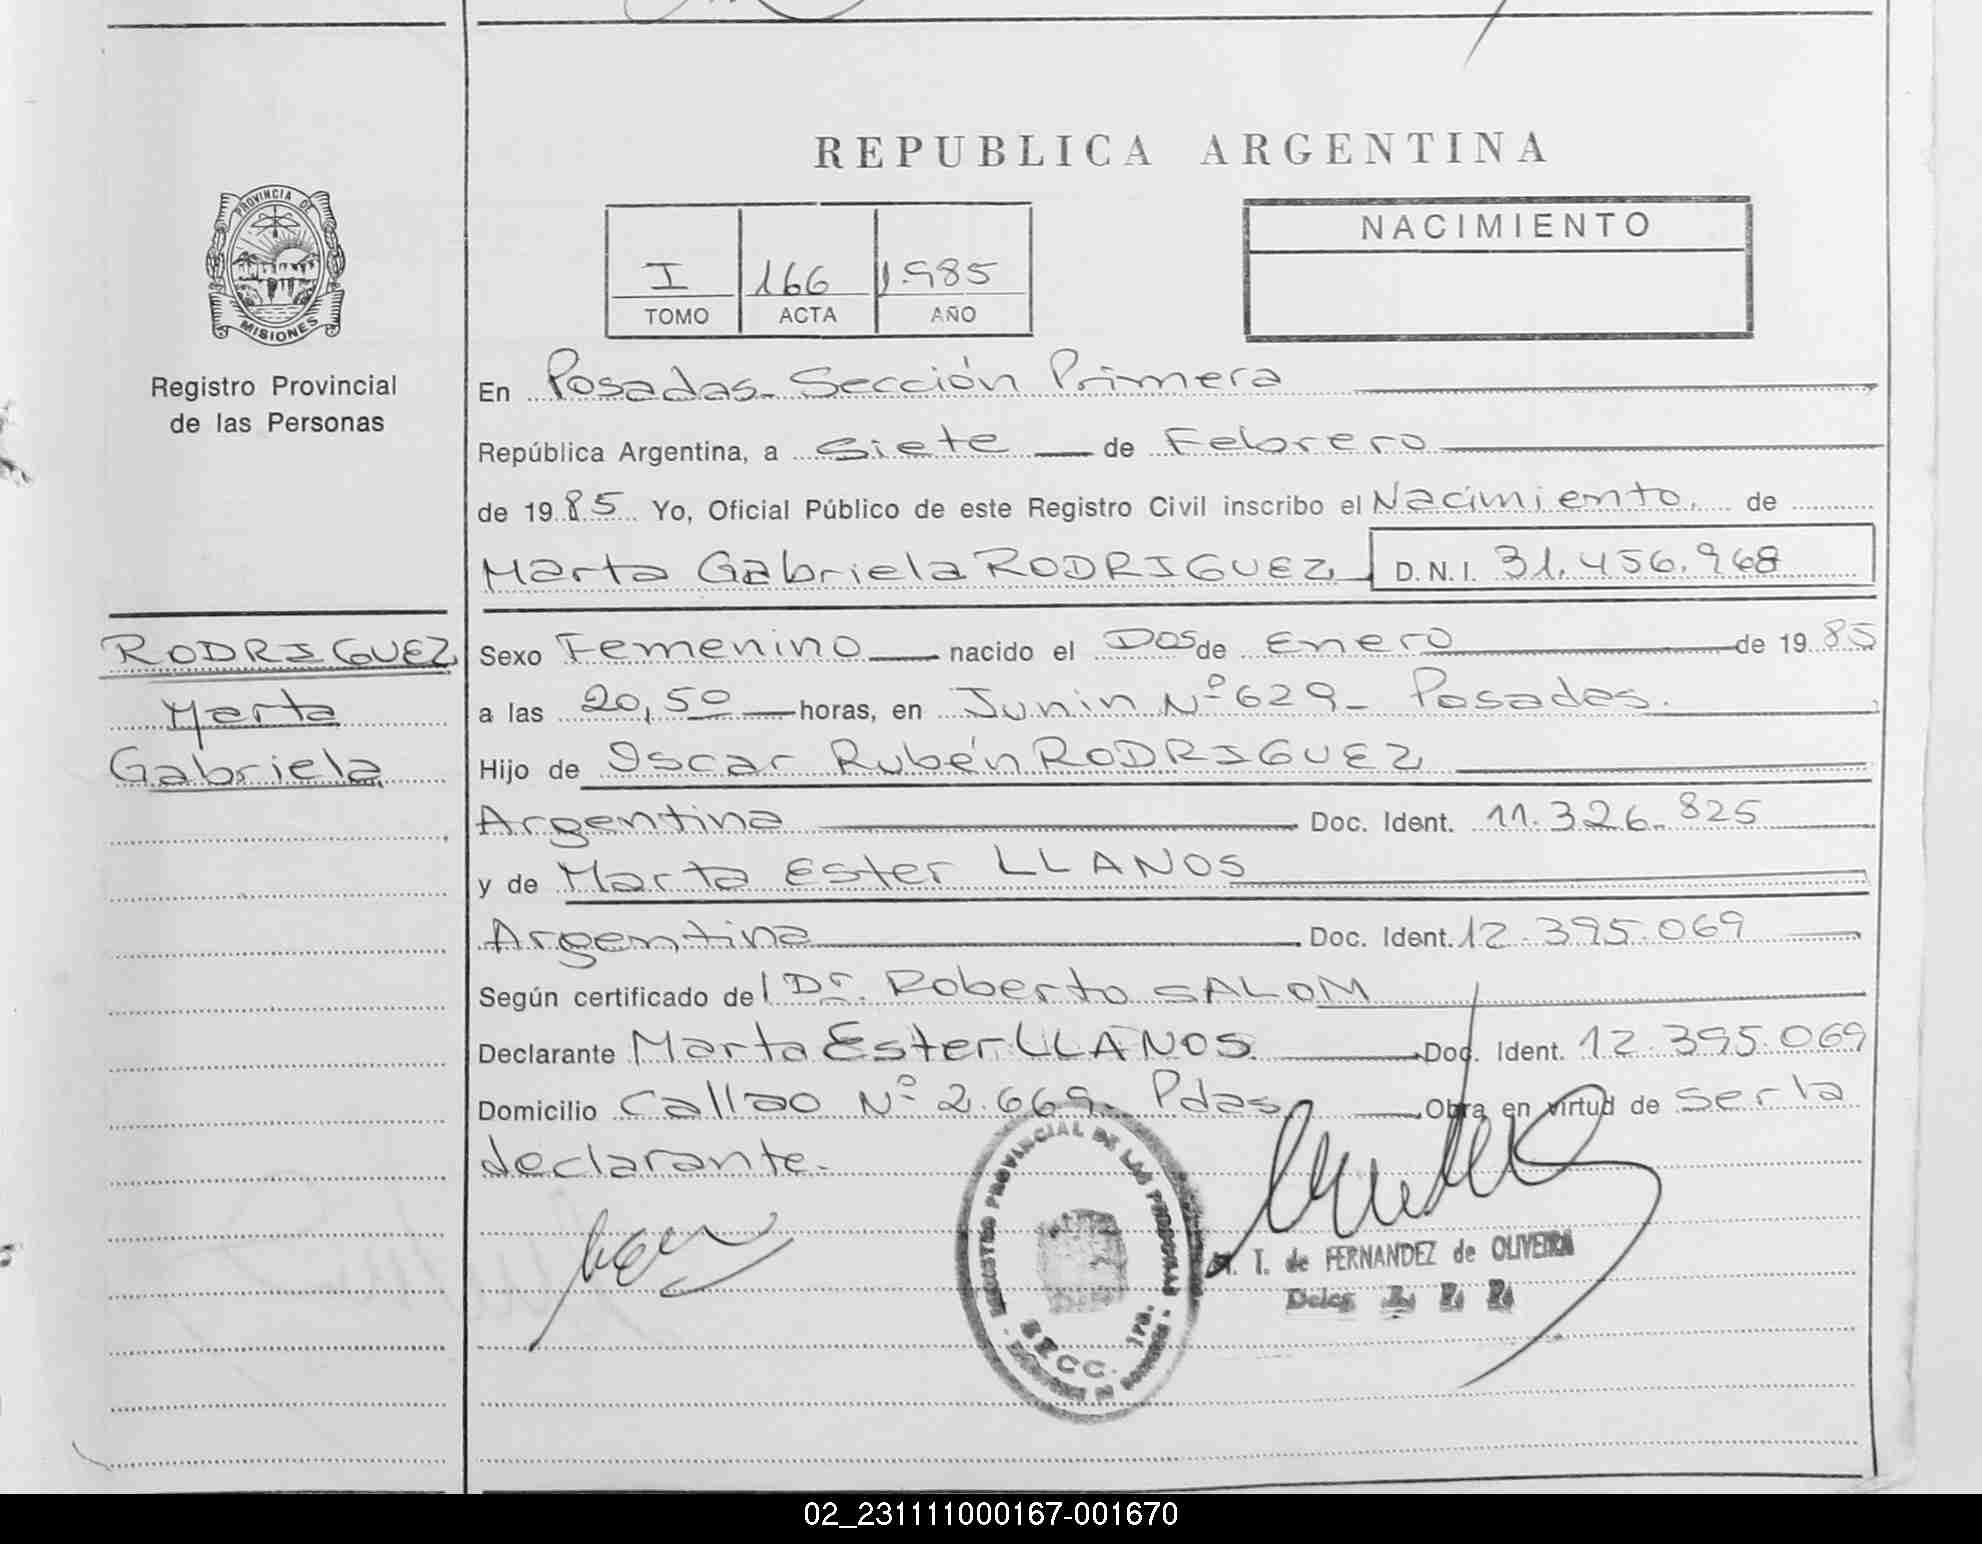 REPUBLICA ARGENTINA
PROVINCIA DE
MISIONES
Registro Provincial
de las Personas
I 166 1.985
TOMO ACTA AÑO
NACIMIENTO
En Posadas. Sección Primera
República Argentina, a Siete de Febrero
de 1985 Yo, Oficial Público de este Registro Civil inscribo el Nacimiento. de
Marta Gabriela RODRIGUEZ D.N.I. 31.456.968
RODRIGUEZ
Marta
Gabriela
Sexo Femenino nacido el Dos de Enero de 1985
a las 20,50 horas, en Junin Nº 629 - Posadas.
Hijo de Oscar Rubén RODRIGUEZ
Argentina Doc. Ident. 11.326.825
y de Marta Ester LLANOS
Argentina Doc. Ident. 12.395.069
Según certificado del Dr. Roberto SALOM
Declarante Marta Ester LLANOS Doc. Ident. 12.395.069
Domicilio Callao Nº 2.669. Pdas Obra en virtud de ser la
declarante.
REGISTRO PROVINCIAL DE LAS PERSONAS
SECC. 1RA.
M. I. de FERNANDEZ de OLIVEIRA
Deleg R. P. P.
02_231111000167-001670